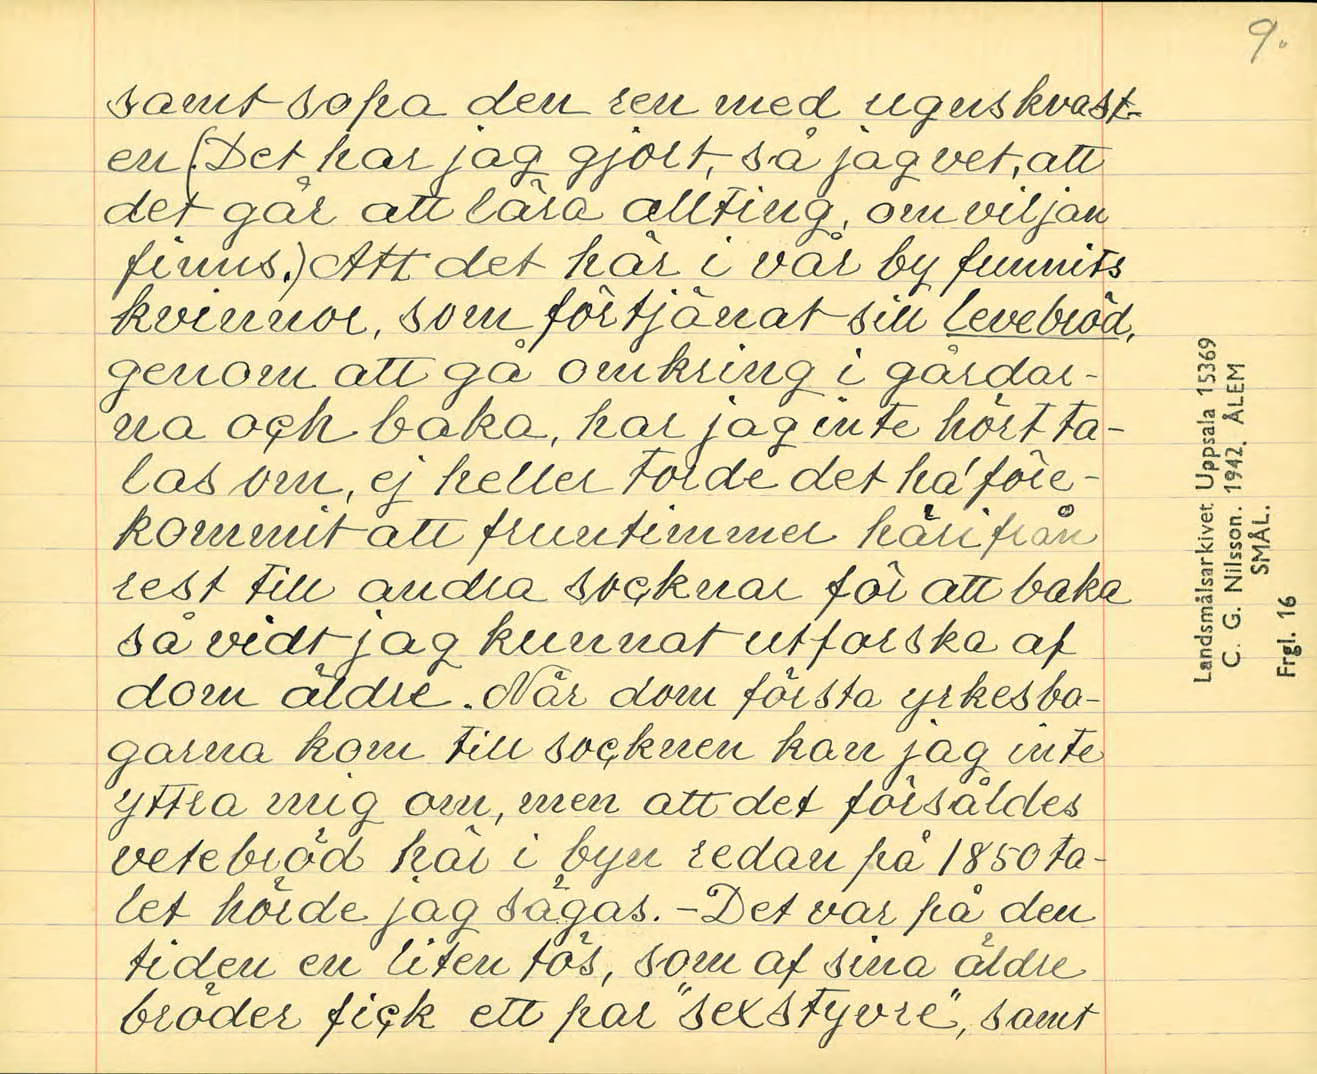 9.
samt sopa den ren med ugnskvast-
en (Det har jag gjort, så jag vet, att
det går att lära allting, om viljan
finns.) Att det här i vår by funnits
kvinnor, som förtjänat sitt levebröd,
genom att gå omkring i gårdar-
na och baka, har jag inte hört ta-
las om, ej heller torde det ha' före-
kommit att fruntimmer härifrån
rest till andra socknar för att baka
så vidt jag kunnat utforska af
dom äldre. När dom första yrkesba-
garna kom till socknen kan jag inte
yttra mig om, men att det försåldes
vetebröd här i byn redan på 1850 ta-
let hörde jag sägas. - Det var på den
tiden en liten tös, som af sina äldre
bröder fick ett par "sexstyvre", samt
Landsmålsarkivet Uppsala 15369
C. G. Nilsson. 1942. ÅLEM
SMÅL.
Frgl. 16